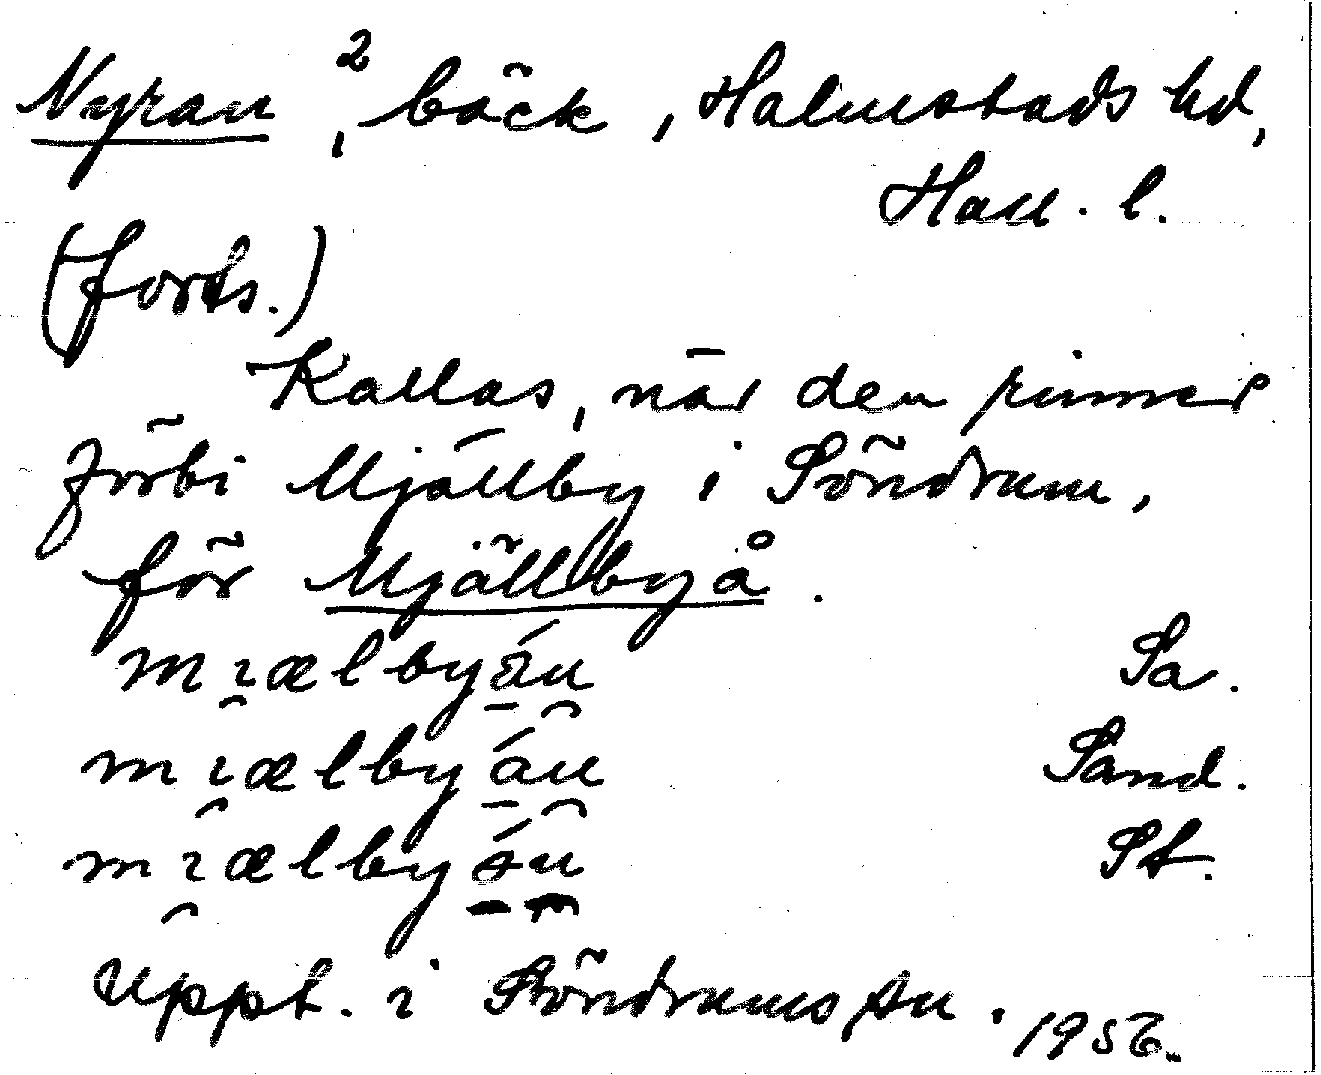 Nyran ², bäck, Halmstads hd,
Hall. l.
(forts.)
Kallas, när den rinner
förbi Mjällby i Söndrum,
för Mjällbyå.
mi̯ælbyán Sa.
mi̯ælbyán Sand.
mi̯ælbyán St.
Uppt. i Söndrums sn. 1956.